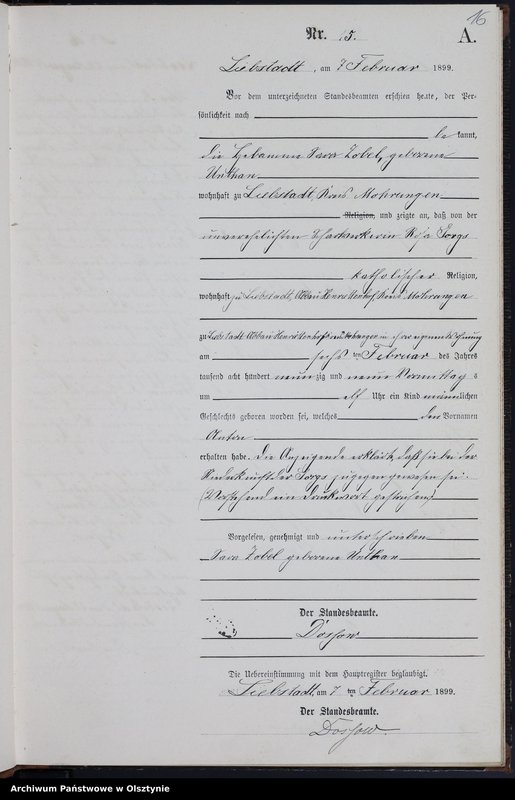 16
Nr. 15.
A.
Liebstadt, am 7 Februar 1899.
Vor dem unterzeichneten Standesbeamten erschien heute, der Per-
sönlichkeit nach
be kannt,
die Hebamme Sara Zobel, geborene
Unthan
wohnhaft zu Liebstadt, Kreis Mohrungen
Religion, und zeigte an, daß von der
unverehelichten Rosa Sorgs
katholischer Religion,
wohnhaft zu Liebstadt, Abbau Henriettenhof Kreis Mohrungen
zu Liebstadt Abbau Henriettenhof Kreis Mohrungen in ihrer eigenen Wohnung
am sechs ten Februar des Jahres
tausend acht hundert neun zig und neun Vormittag s
um elf Uhr ein Kind männlichen
Geschlechts geboren worden sei, welches den Vornamen
Anton
erhalten habe. Die Anzeigende erklärte, daß sie bei der
Niederkunft der Sorgs zugegen gewesen sei.
(Vorstehend ein Druckwort gestrichen)
Vorgelesen, genehmigt und unterschrieben
Sara Zobel geborene Unthan
Der Standesbeamte.
Dossow
Die Uebereinstimmung mit dem Hauptregister beglaubigt.
Liebstadt, am 7 ten Februar 1899.
Der Standesbeamte.
Dossow
Archiwum Państwowe w Olsztynie